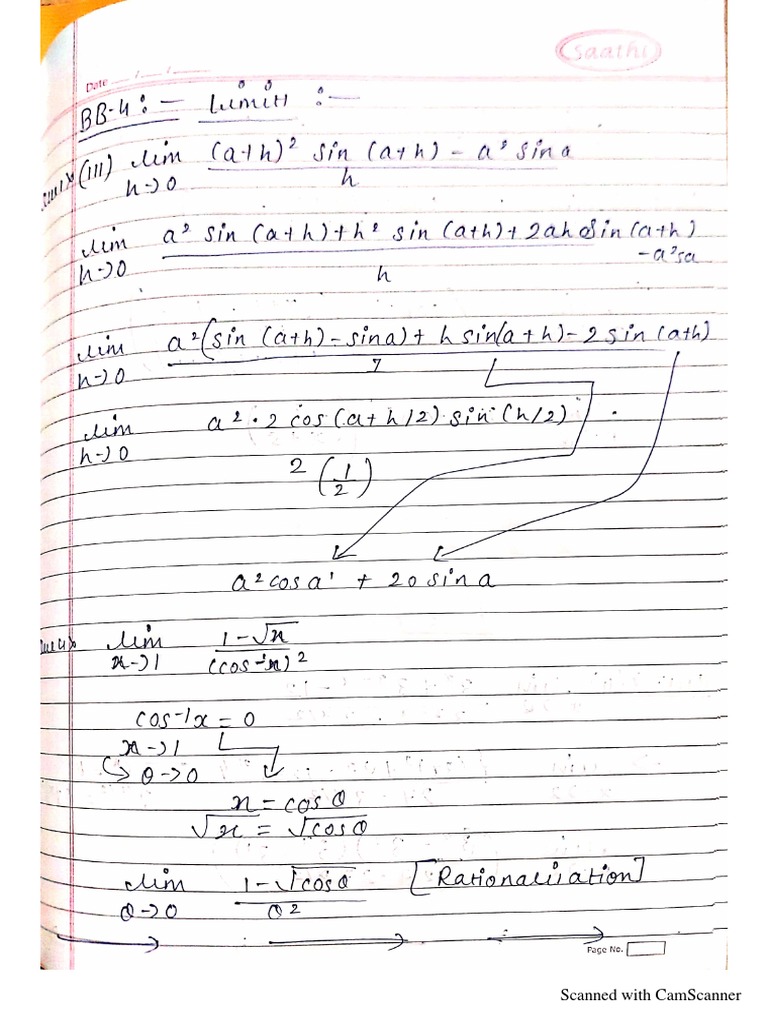 Saathi
Date __/__/__
BB-4 :- Limits :-
(III) lim h→0 (a+h)² sin (a+h) - a² sin a / h
lim h→0 a² sin (a+h) + h² sin (a+h) + 2ah sin (a+h) - a² sa / h
lim h→0 a² (sin (a+h) - sin a) + h sin (a+h) - 2 sin (a+h) /
lim h→0 a² . 2 cos (a + h/2) . sin (h/2) .
2 (1/2)
a² cos a + 20 sin a
lim x→1 1-√x / (cos⁻¹x)²
cos⁻¹x = θ
x→1
θ→0
x = cos θ
√x = √cos θ
lim θ→0 1-√cos θ / θ² [Rationalisation]
Page No.
Scanned with CamScanner